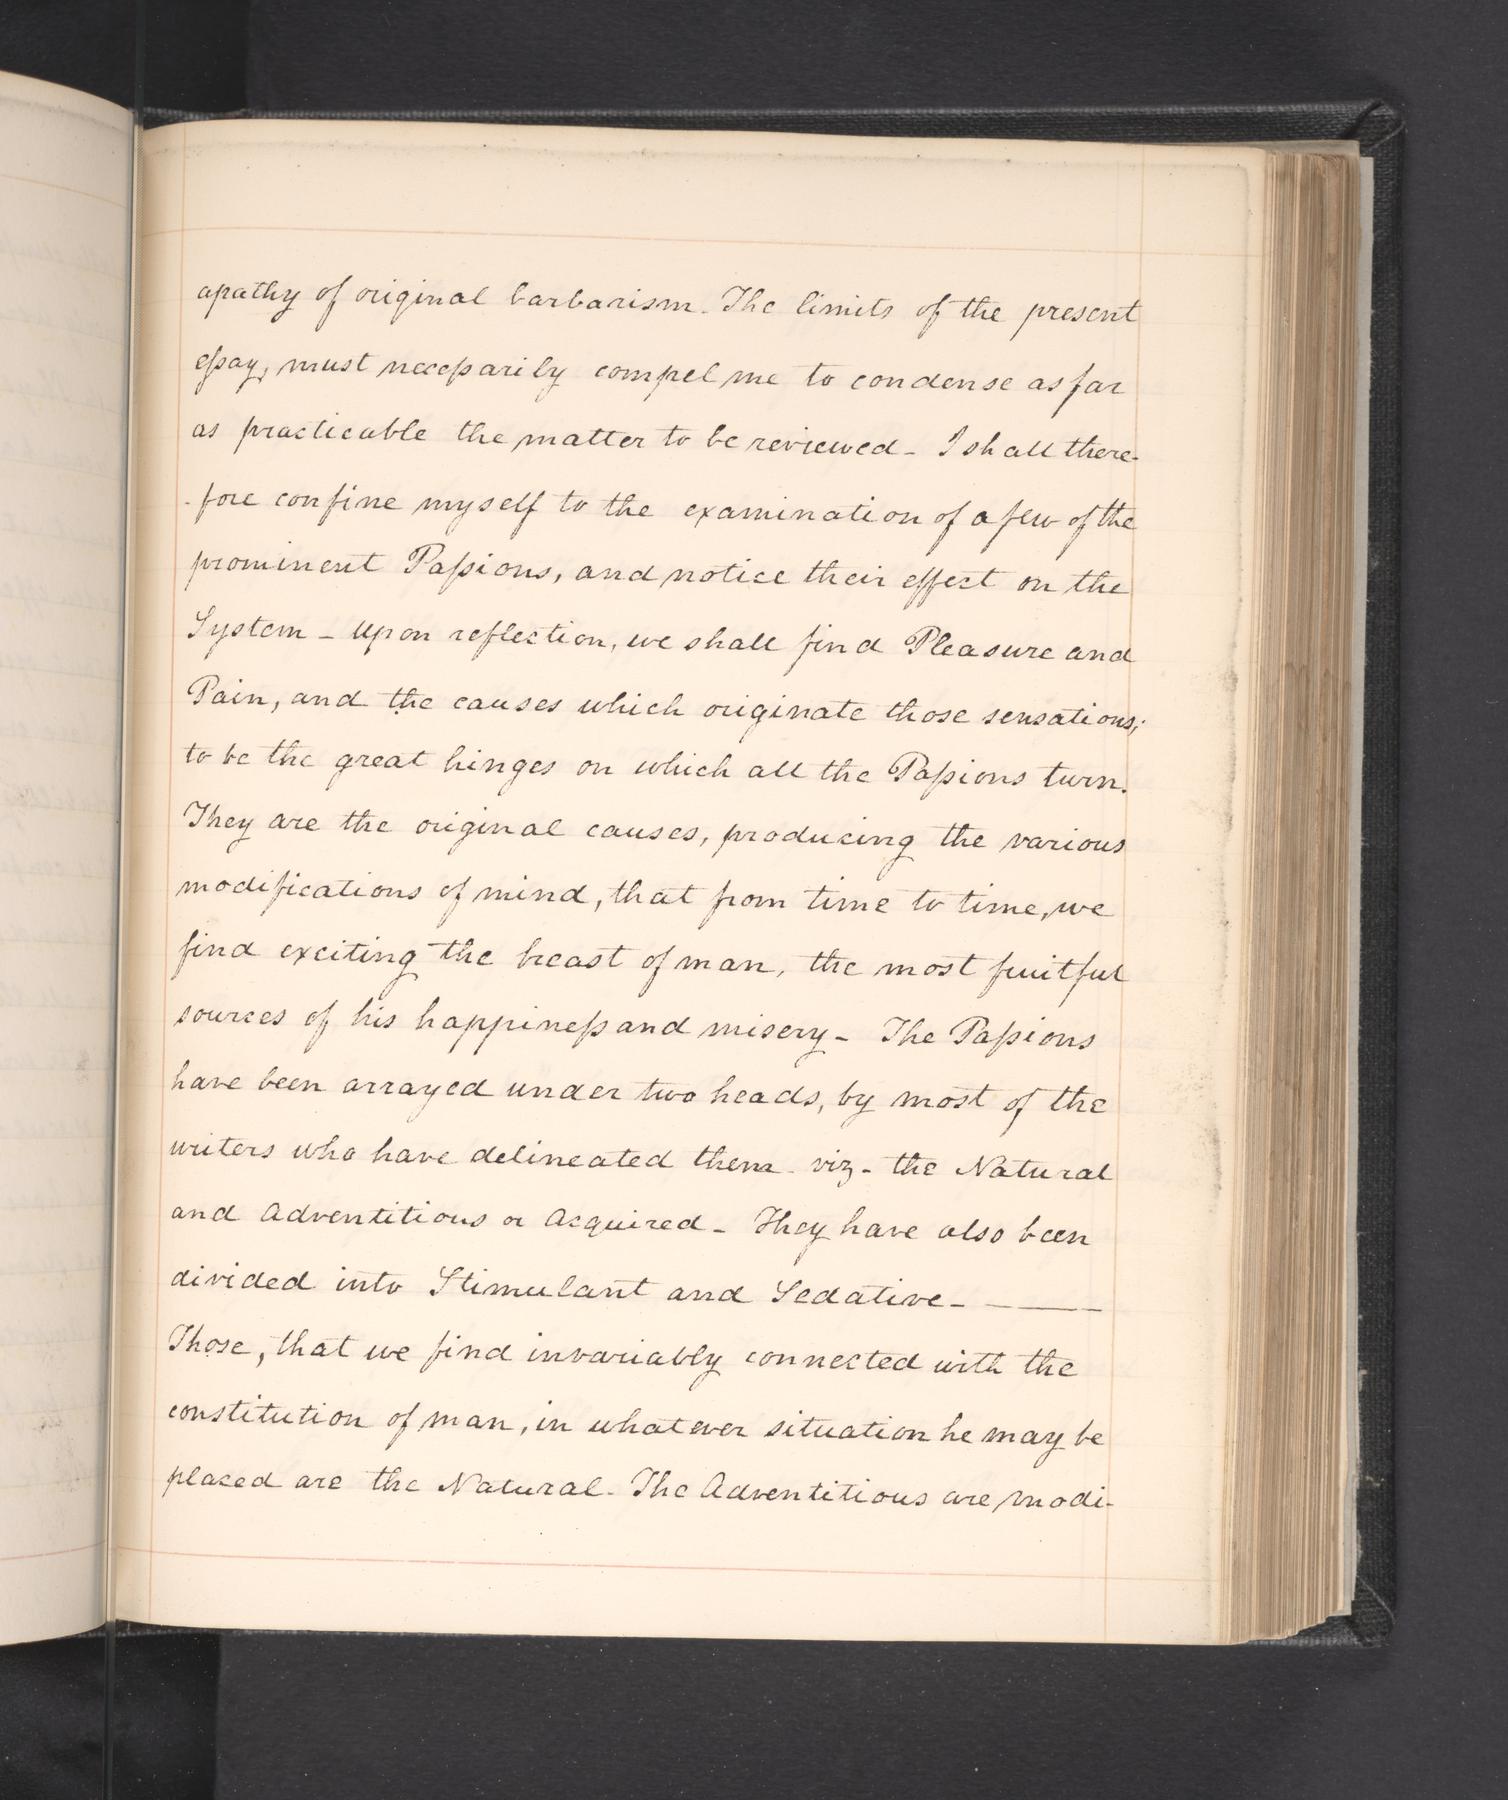 apathy of original barbarism. The limits of the present
eſsay, must neceſsarily compel me to condense as far
as practicable the matter to be reviewed - I shall there-
-fore confine myself to the examination of a few of the
prominent Paſsions, and notice their effect on the
System - Upon reflection, we shall find Pleasure and
Pain, and the causes which originate those sensations,
to be the great hinges on which all the Paſsions turn.
They are the original causes, producing the various
modifications of mind, that from time to time, we
find exciting the breast of man, the most fruitful
sources of his happineſs and misery - The Paſsions
have been arrayed under two heads, by most of the
writers who have delineated them - viz - the Natural
and Adventitious or Acquired - They have also been
divided into Stimulant and Sedative - — ——
Those, that we find invariably connected with the
constitution of man, in whatever situation he may be
placed are the Natural - The Adventitious are modi-